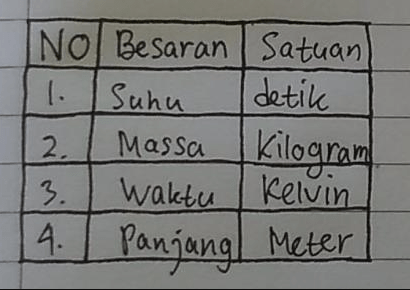 NO Besaran Satuan
1. Suhu detik
2. Massa Kilogram
3. Waktu Kelvin
4. Panjang Meter